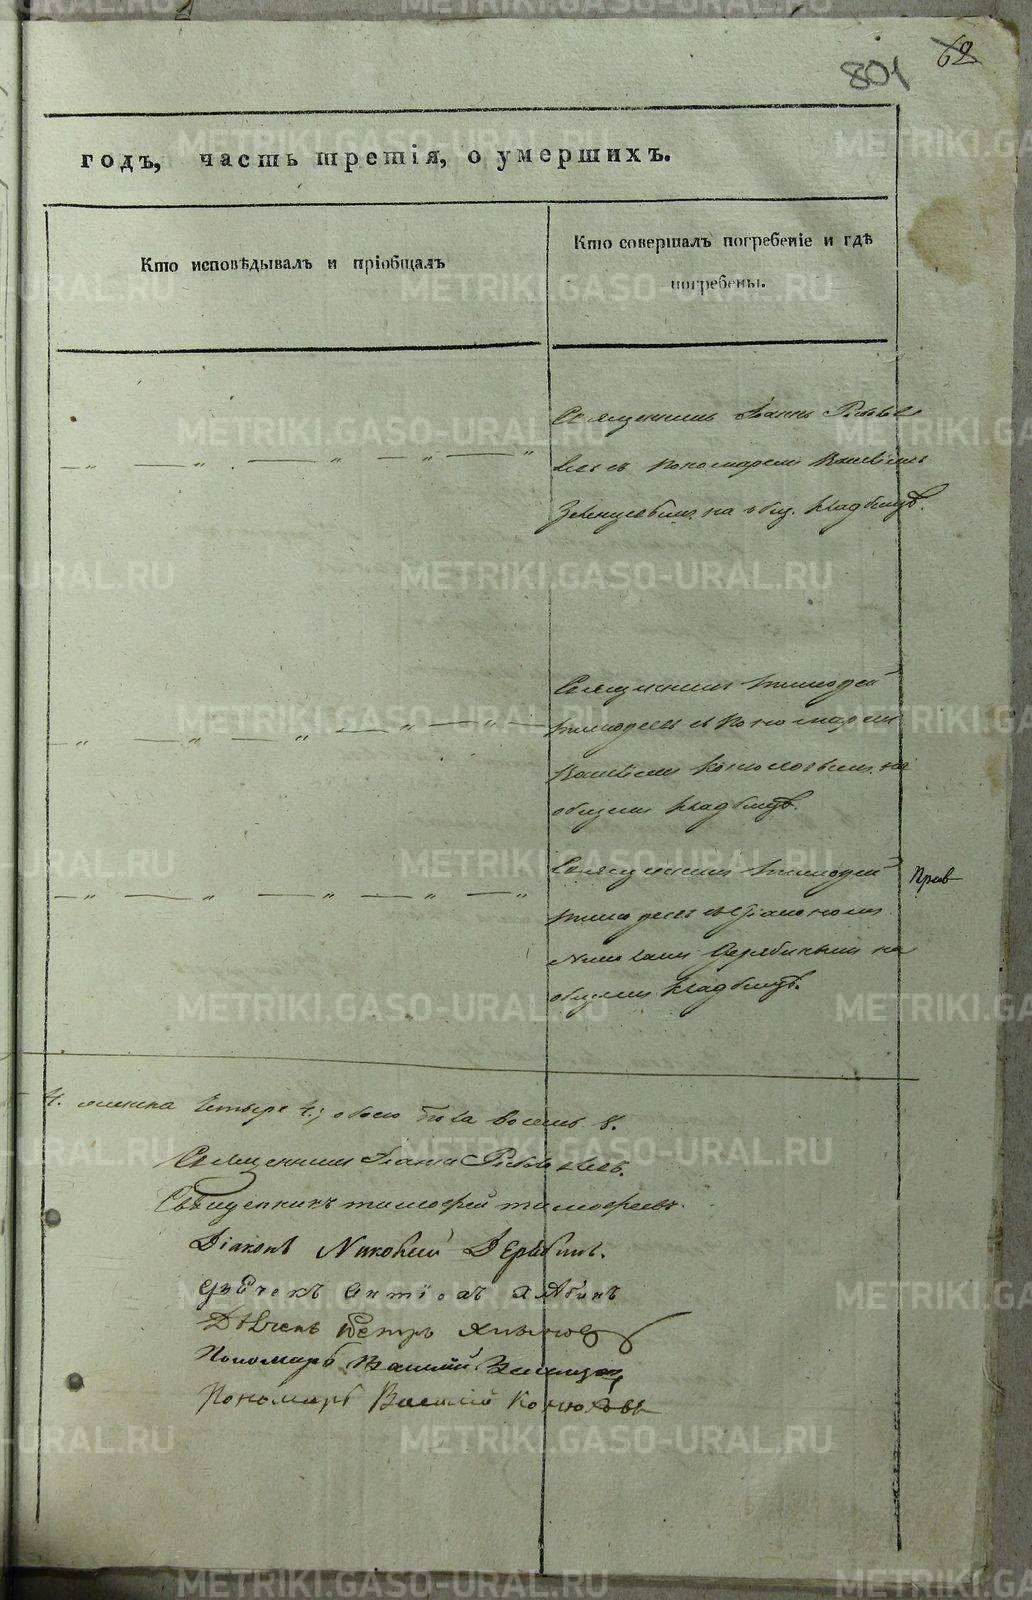 62
801
годъ, часть третія, о умершихъ.
Кто исповѣдывалъ и пріобщалъ
Кто совершалъ погребеніе и гдѣ
погребены.
Священникъ Іоаннъ
съ пономаремъ Василіемъ
на общ. кладбищѣ.
Священникъ Тимофей
Тимофеевъ съ пономаремъ
Василіемъ Конюховымъ на
общемъ кладбищѣ.
Священникъ Тимофей
Тимофеевъ съ діакономъ
Николаемъ Дерябинымъ на
общемъ кладбищѣ.
Прив
4. женска четыре 4; обоего пола восемь 8.
Священникъ Іоаннъ
Священникъ Тимофей Тимофеевъ.
Діаконъ Николай Дерябинъ.
Дьячекъ Антіохъ
Дьячекъ Петръ
Пономарь Василій
Пономарь Василій Конюховъ
METRIKI.GASO-URAL.RU